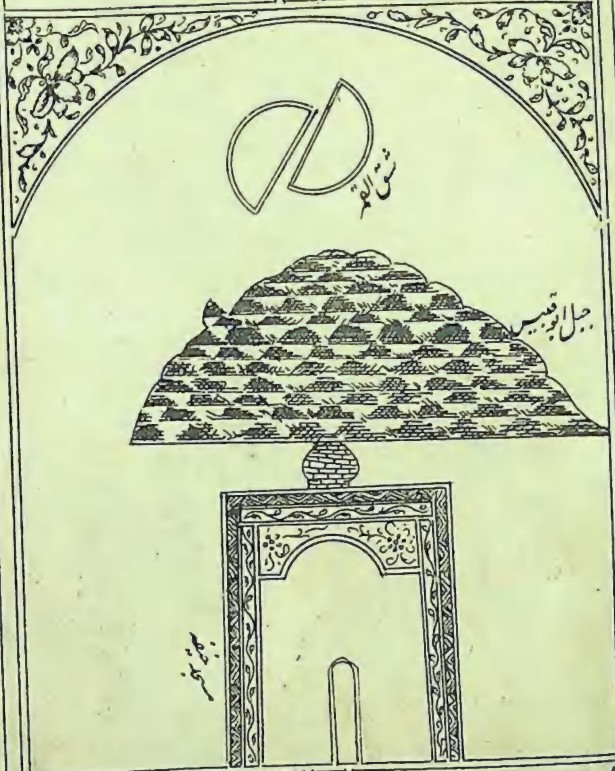 شق القمر
جبل ابو قبیس